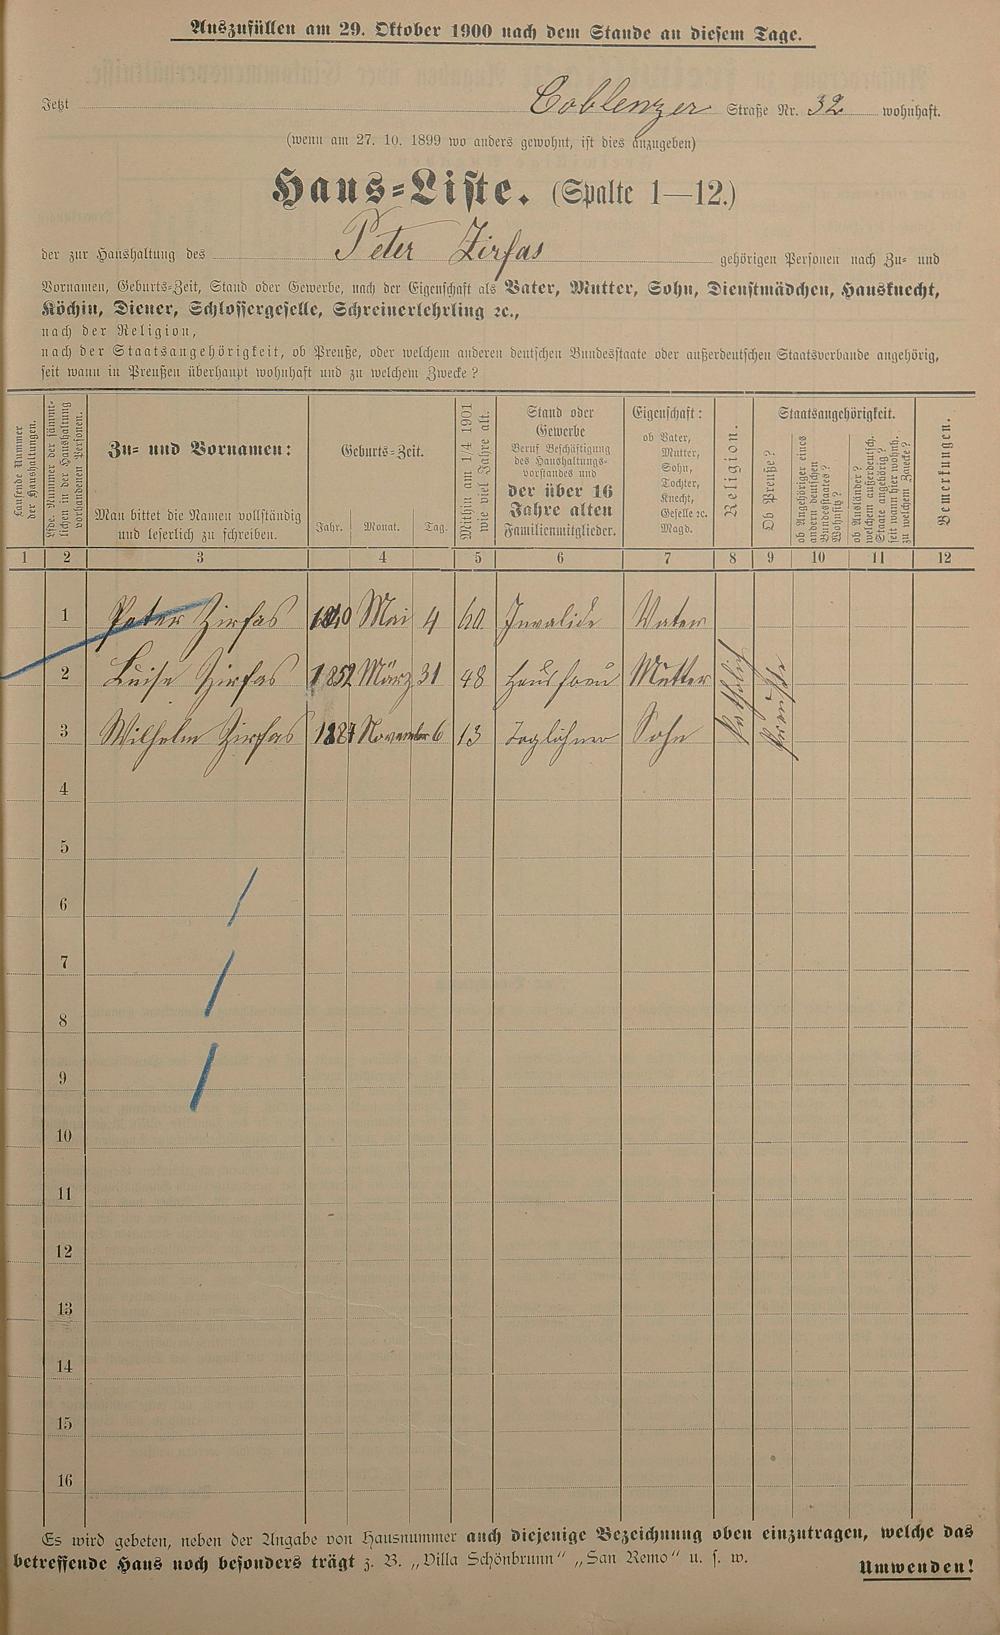 Auszufüllen am 29. Oktober 1900 nach dem Stande an diesem Tage.
Jetzt Coblenzer Straße Nr. 32 wohnhaft.
(wenn am 27. 10. 1899 wo anders gewohnt, ist dies anzugeben)
Haus=Liste. (Spalte 1—12.)
der zur Haushaltung des Peter Zirfas gehörigen Personen nach Zu= und
Vornamen, Geburts=Zeit, Stand oder Gewerbe, nach der Eigenschaft als Vater, Mutter, Sohn, Dienstmädchen, Hausknecht,
Köchin, Diener, Schlossergeselle, Schreinerlehrling ꝛc.,
nach der Religion,
nach der Staatsangehörigkeit, ob Preuße, oder welchem anderen deutschen Bundesstaate oder außerdeutschen Staatsverbande angehörig,
seit wann in Preußen überhaupt wohnhaft und zu welchem Zwecke?
Laufende Nummer
der Haushaltungen.
Lfde. Nummer der sämmt-
lichen in der Haushaltung
vorhandenen Personen.
Zu= und Vornamen:
Man bittet die Namen vollständig
und leserlich zu schreiben.
Geburts=Zeit.
Jahr. Monat. Tag.
Mithin am 1/4 1901
wie viel Jahre alt.
Stand oder
Gewerbe
Beruf Beschäftigung
des Haushaltungs-
vorstandes und
der über 16
Jahre alten
Familienmitglieder.
Eigenschaft:
ob Vater,
Mutter,
Sohn,
Tochter,
Knecht,
Geselle ꝛc.
Magd.
Religion.
Staatsangehörigkeit.
Ob Preuße?
ob Angehöriger eines
andern deutschen
Bundesstaates?
Wohnsitz?
ob Ausländer?
welchem außerdeutsch.
Staate angehörig?
seit wann hier wohnh.
zu welchem Zwecke?
Bemerkungen.
1 2 3 4 5 6 7 8 9 10 11 12
1 Peter Zirfas 1840 Mai 4 60 Invalide Vater
2 Luise Zirfas 1852 März 31 48 Hausfrau Mutter
3 Wilhelm Zirfas 1887 November 6 13 Taglöhner Sohn
Katholich
Preuße
4
5
6
7
8
9
10
11
12
13
14
15
16
Es wird gebeten, neben der Angabe von Hausnummer auch diejenige Bezeichnung oben einzutragen, welche das
betreffende Haus noch besonders trägt z. B. „Villa Schönbrunn" „San Remo" u. s. w.
Umwenden!